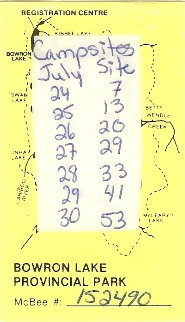 REGISTRATION CENTRE
KIBBEE LAKE
BOWRON
LAKE
Campsites
July Site
24 7
SWAN
LAKE
25 13
BETTY
WENDLE
CREEK
26 20
27 29
28 33
29 41
McLEARY
LAKE
30 53
BOWRON LAKE
PROVINCIAL PARK
McBee #: 152490